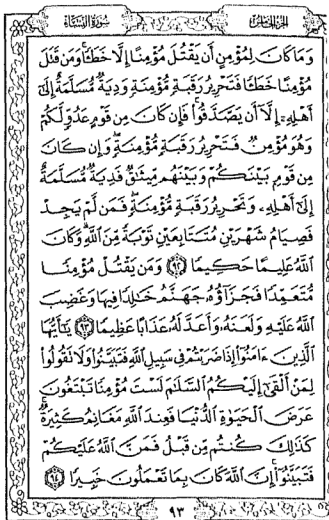 الجزء الخامس
سورة النساء
وَمَا كَانَ لِمُؤْمِنٍ أَن يَقْتُلَ مُؤْمِنًا إِلَّا خَطَـًٔا وَمَن قَتَلَ
مُؤْمِنًا خَطَـًٔا فَتَحْرِيرُ رَقَبَةٍ مُّؤْمِنَةٍ وَدِيَةٌ مُّسَلَّمَةٌ إِلَىٰٓ
أَهْلِهِۦٓ إِلَّآ أَن يَصَّدَّقُوا۟ فَإِن كَانَ مِن قَوْمٍ عَدُوٍّ لَّكُمْ
وَهُوَ مُؤْمِنٌ فَتَحْرِيرُ رَقَبَةٍ مُّؤْمِنَةٍ وَإِن كَانَ
مِن قَوْمٍۭ بَيْنَكُمْ وَبَيْنَهُم مِّيثَـٰقٌ فَدِيَةٌ مُّسَلَّمَةٌ
إِلَىٰٓ أَهْلِهِۦ وَتَحْرِيرُ رَقَبَةٍ مُّؤْمِنَةٍ فَمَن لَّمْ يَجِدْ
فَصِيَامُ شَهْرَيْنِ مُتَتَابِعَيْنِ تَوْبَةً مِّنَ ٱللَّهِ وَكَانَ
ٱللَّهُ عَلِيمًا حَكِيمًا ٩٢ وَمَن يَقْتُلْ مُؤْمِنًا
مُّتَعَمِّدًا فَجَزَآؤُهُۥ جَهَنَّمُ خَـٰلِدًا فِيهَا وَغَضِبَ
ٱللَّهُ عَلَيْهِ وَلَعَنَهُۥ وَأَعَدَّ لَهُۥ عَذَابًا عَظِيمًا ٩٣ يَـٰٓأَيُّهَا
ٱلَّذِينَ ءَامَنُوٓا۟ إِذَا ضَرَبْتُمْ فِى سَبِيلِ ٱللَّهِ فَتَبَيَّنُوا۟ وَلَا تَقُولُوا۟
لِمَنْ أَلْقَىٰٓ إِلَيْكُمُ ٱلسَّلَـٰمَ لَسْتَ مُؤْمِنًا تَبْتَغُونَ
عَرَضَ ٱلْحَيَوٰةِ ٱلدُّنْيَا فَعِندَ ٱللَّهِ مَغَانِمُ كَثِيرَةٌ
كَذَٰلِكَ كُنتُم مِّن قَبْلُ فَمَنَّ ٱللَّهُ عَلَيْكُمْ
فَتَبَيَّنُوٓا۟ إِنَّ ٱللَّهَ كَانَ بِمَا تَعْمَلُونَ خَبِيرًا ٩٤
٩٣